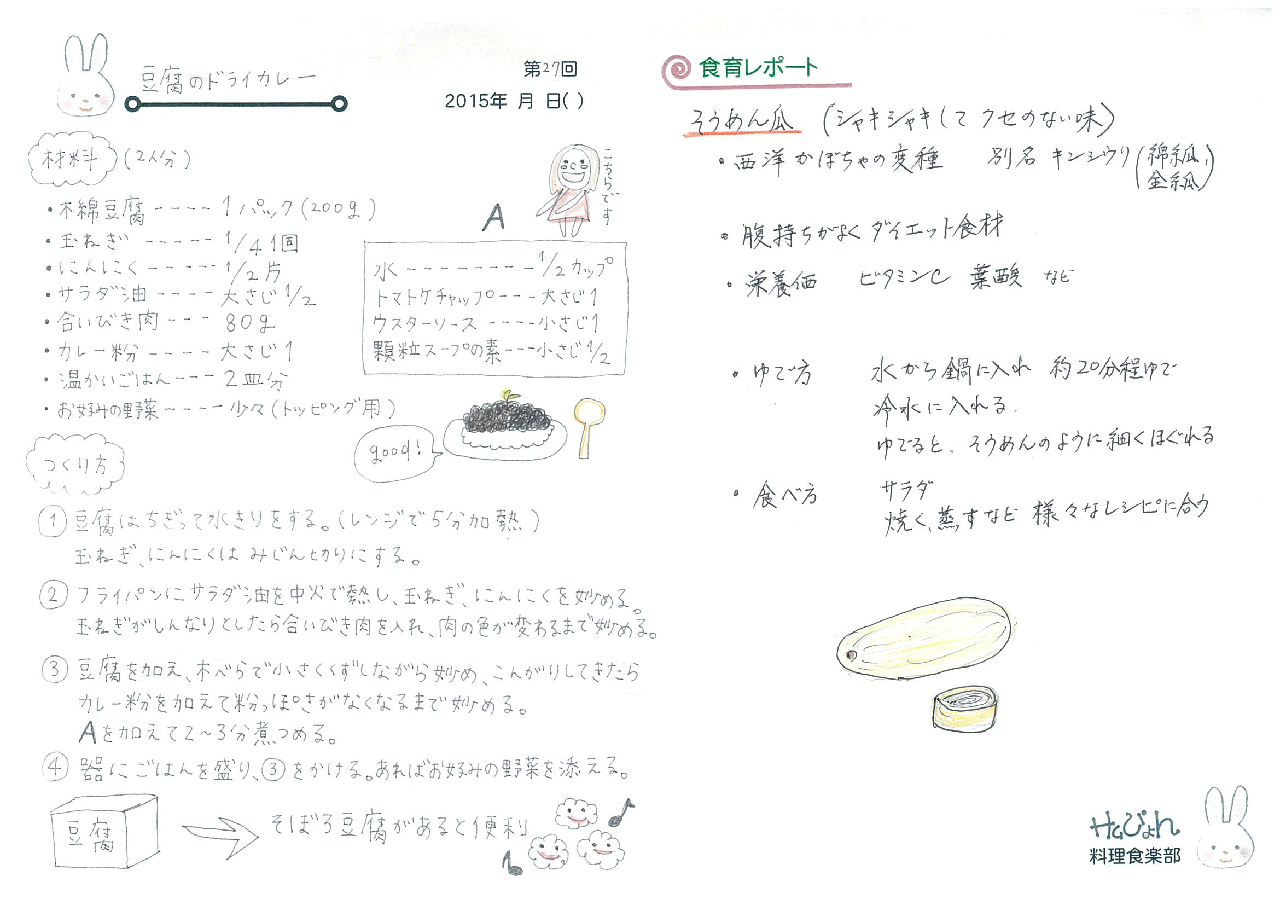 豆腐のドライカレー
第27回
2015年 月 日( )
材料 (2人分)
・木綿豆腐----1パック(200g)
・玉ねぎ-----1/4個
・にんにく----1/2片
・サラダ油----大さじ1/2
・合いびき肉---80g
・カレー粉----大さじ1
・温かいごはん---2皿分
・お好みの野菜----少々(トッピング用)
こちらです
A
水--------1/2カップ
トマトケチャップ---大さじ1
ウスターソース----小さじ1
顆粒スープの素---小さじ1/2
good!
つくり方
① 豆腐はちぎって水きりをする。(レンジで5分加熱)
玉ねぎ、にんにくは みじん切りにする。
② フライパンにサラダ油を中火で熱し、玉ねぎ、にんにくを炒める。
玉ねぎがしんなりとしたら合いびき肉を入れ、肉の色が変わるまで炒める。
③ 豆腐を加え、木べらで小さくくずしながら炒め、こんがりしてきたら
カレー粉を加えて粉っぽさがなくなるまで炒める。
Aを加えて2〜3分煮つめる。
④ 器にごはんを盛り、③をかける。あればお好みの野菜を添える。
豆腐
そぼろ豆腐があると便利
食育レポート
そうめん瓜 (シャキシャキして クセのない味)
・西洋かぼちゃの変種 別名 キンシウリ(綿糸瓜、
金糸瓜)
・腹持ちがよく ダイエット食材
・栄養価 ビタミンC 葉酸 など
・ゆで方 水から鍋に入れ 約20分程ゆで
冷水に入れる.
ゆでると、そうめんのように細くほぐれる
・食べ方 サラダ
焼く、蒸すなど 様々なレシピに合う
料理食楽部